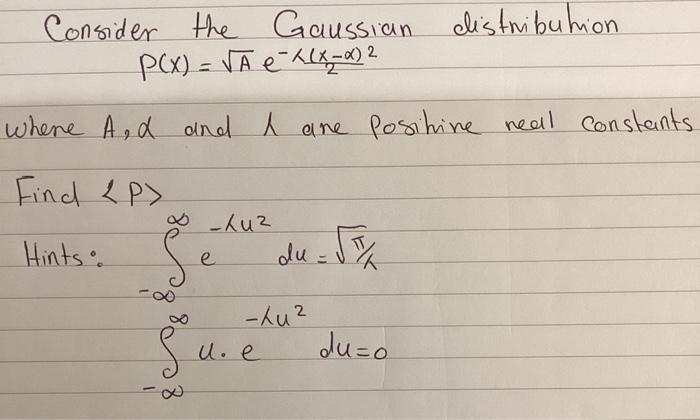 Consider the Gaussian distribution
P(x) = √A e^-λ(x-α)²/2
where A, α and λ are Positive real constants
Find <P>
Hints: ∫_{-∞}^{∞} e^{-λu²} du = √π/λ
∫_{-∞}^{∞} u. e^{-λu²} du=0